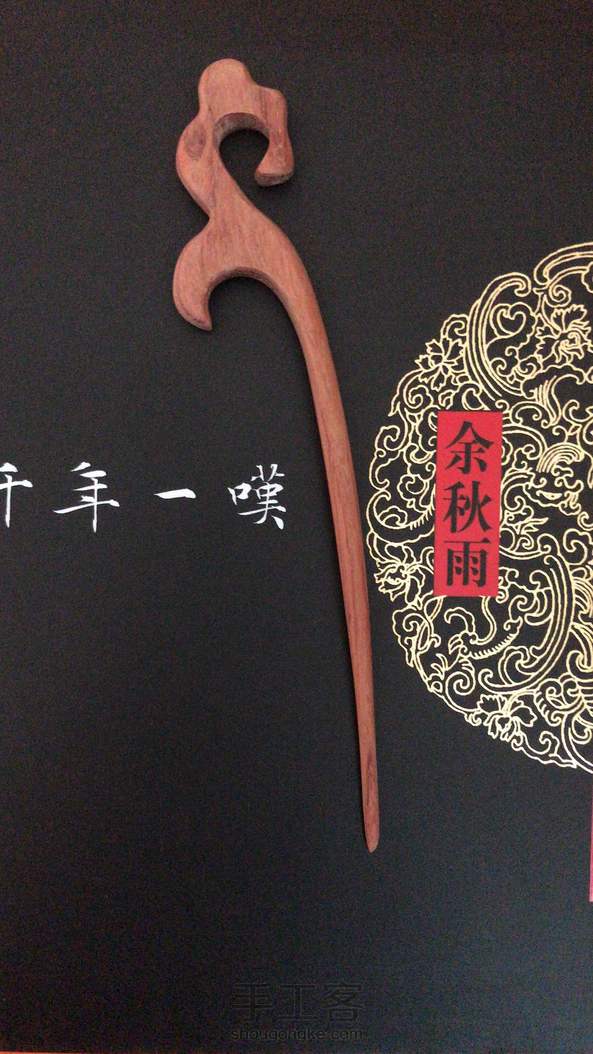 千年一嘆
余秋雨
手工客
shougongke.com